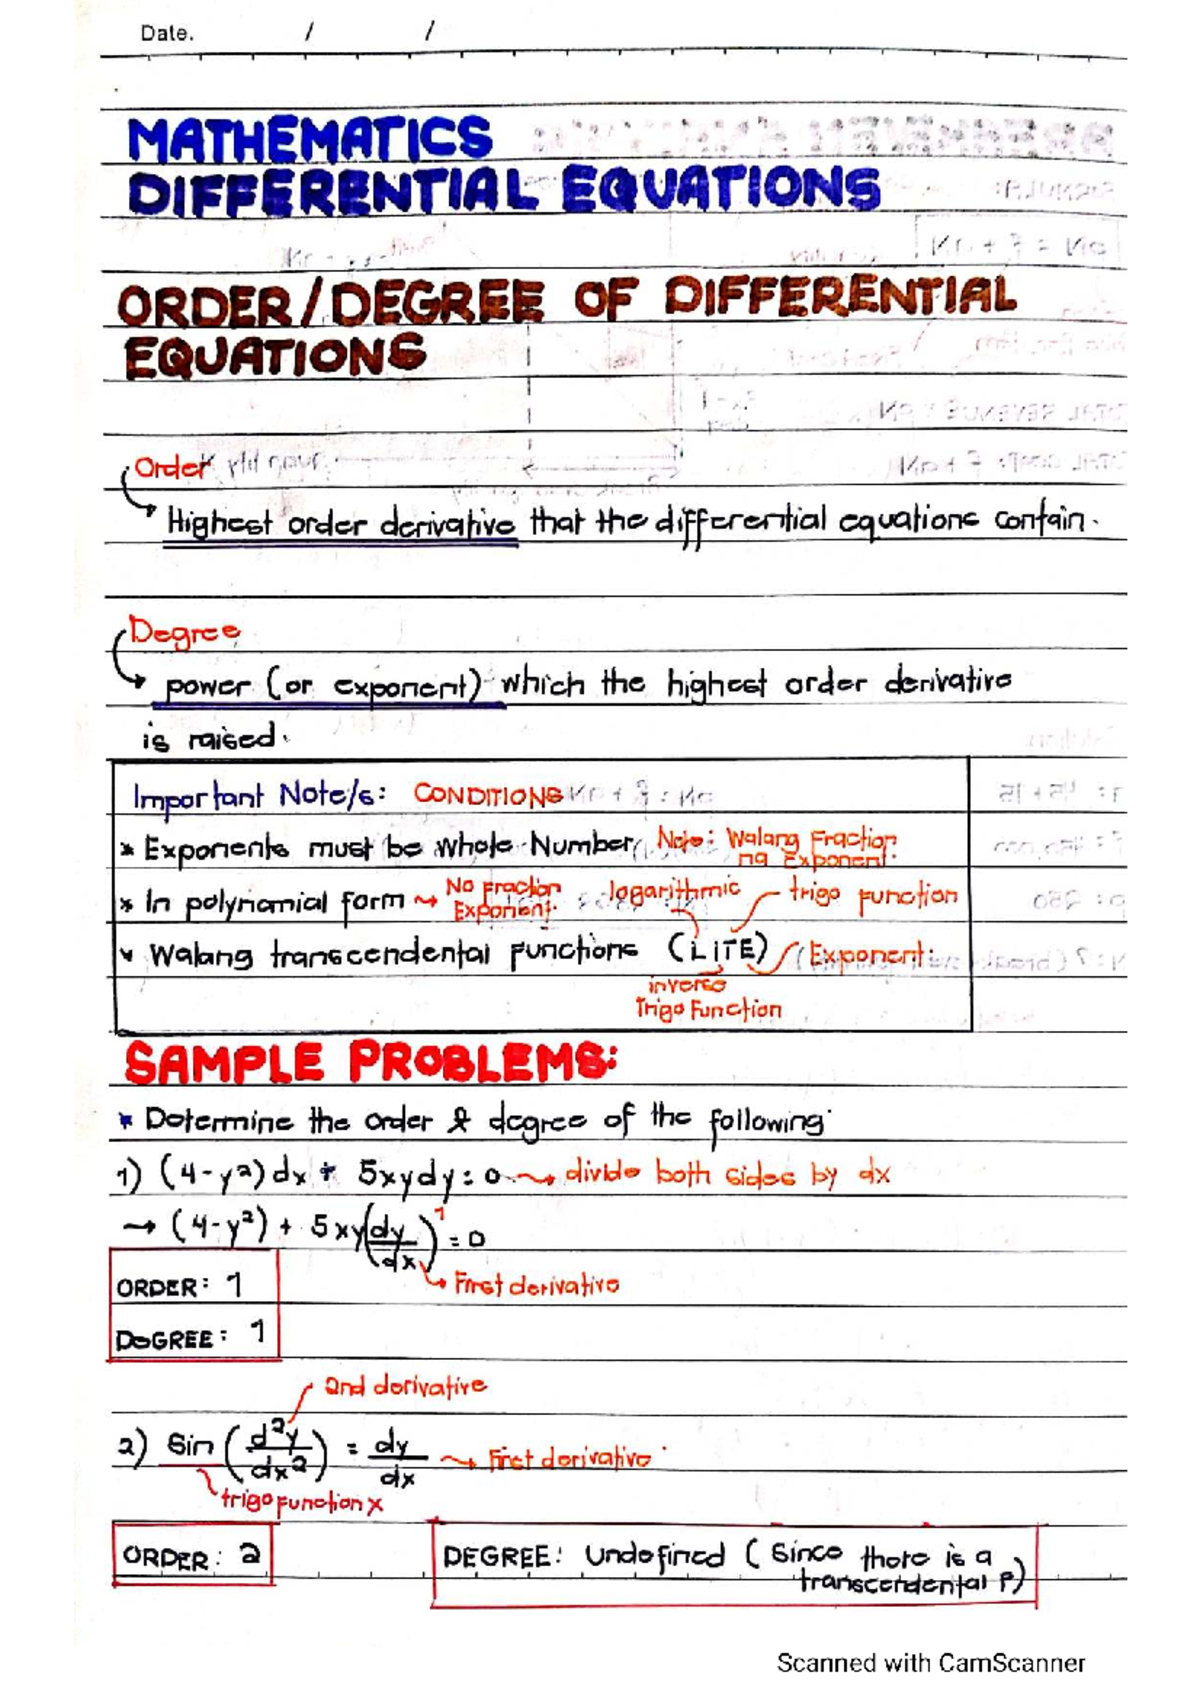 Date. / /
MATHEMATICS
DIFFERENTIAL EQUATIONS
ORDER/DEGREE OF DIFFERENTIAL
EQUATIONS
Order
Highest order derivative that the differential equations contain.
Degree
power (or exponent) which the highest order derivative
is raised.
Important Note/s: CONDITIONS
* Exponents must be whole Number Note: Walang Fraction
ng Exponent.
* In polynomial form → No fraction
Exponent.
logarithmic
trigo function
* Walang transcendental functions (LiTE) Exponent.
inverse
Trigo Function
SAMPLE PROBLEMS:
* Determine the order & degree of the following
1) (4-y²)dx + 5xydy = 0 → divide both sides by dx
→ (4-y²) + 5xy(dy/dx)¹ = 0
First derivative
ORDER: 1
DEGREE: 1
2nd derivative
2) Sin (d²y/dx²) = dy/dx → First derivative
trigo function x
ORDER: 2
DEGREE: Undefined (Since there is a
transcendental F)
Scanned with CamScanner